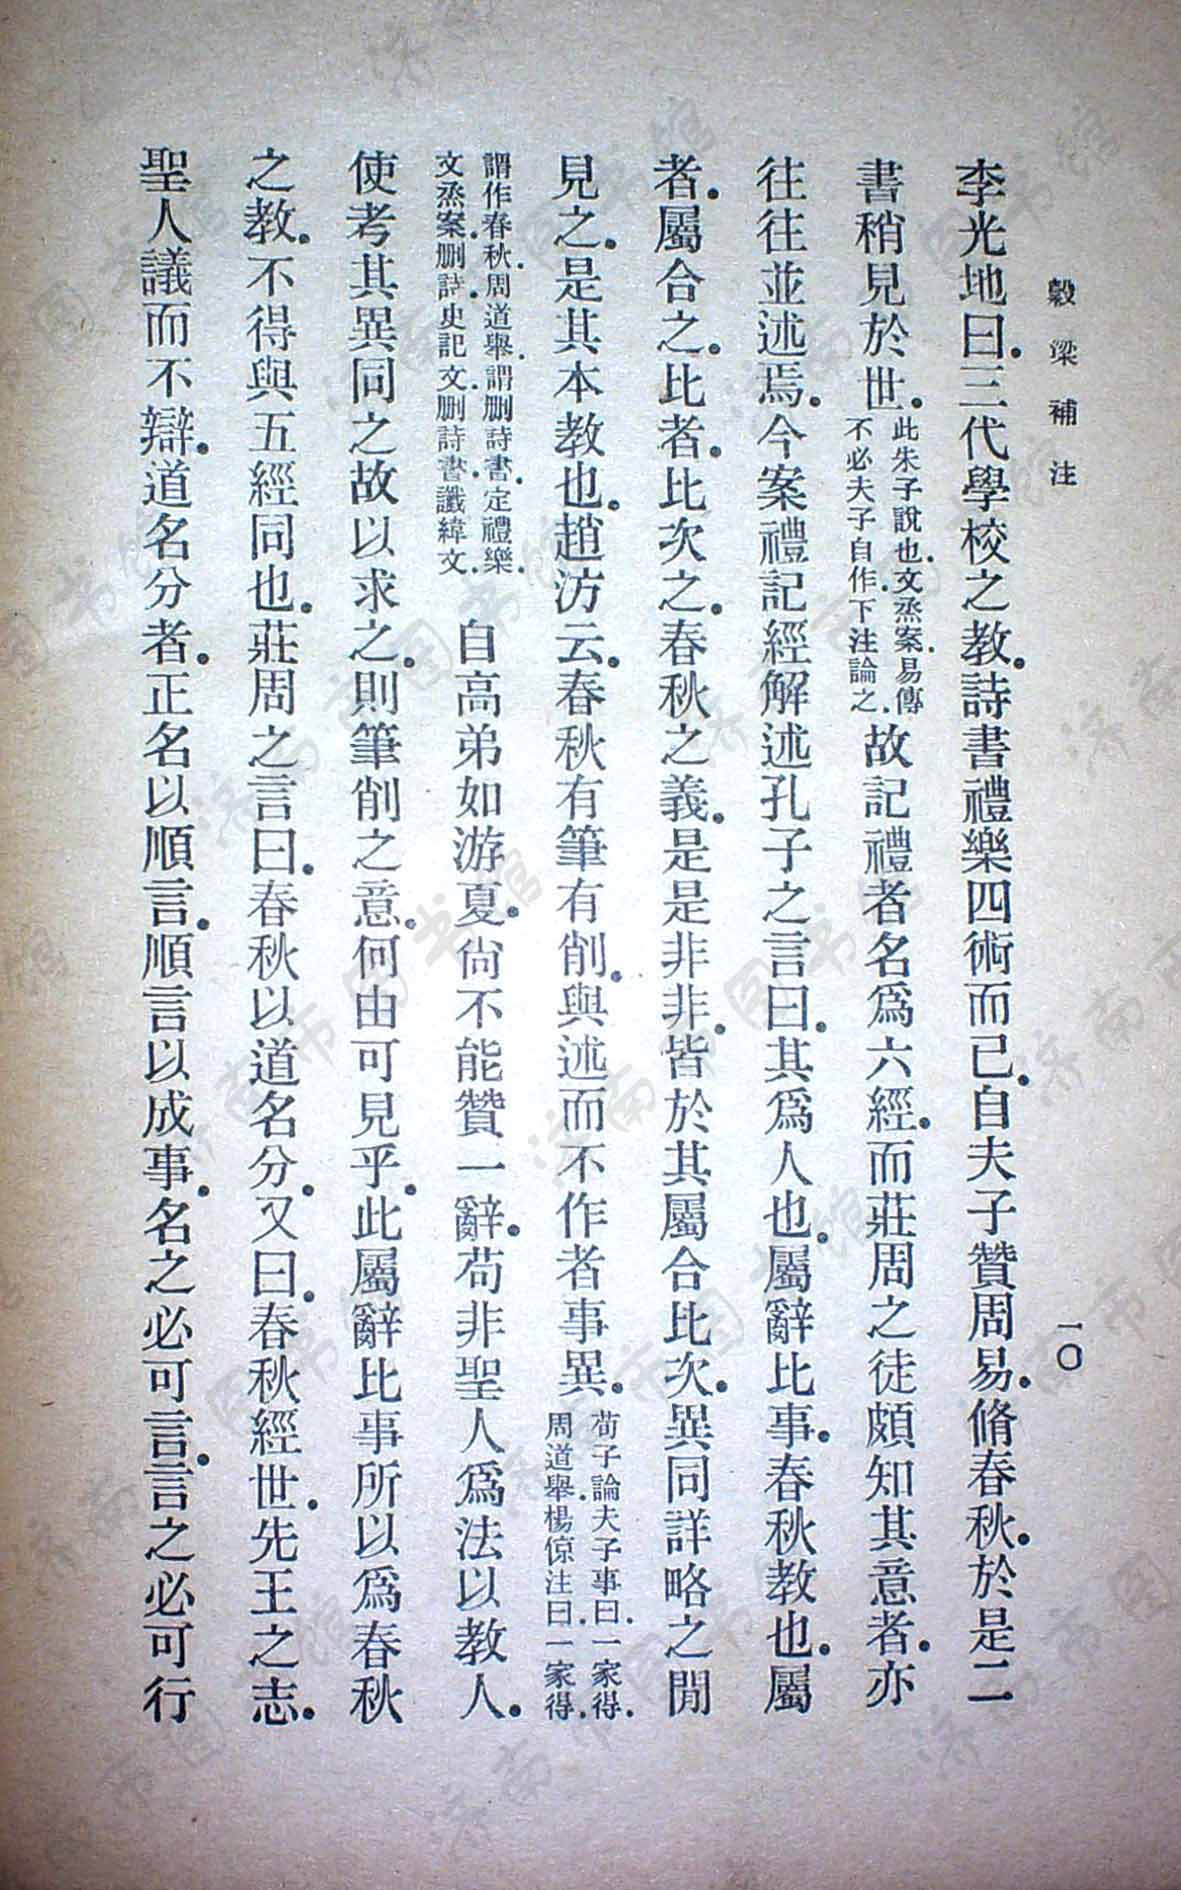 穀梁補注
一〇
李光地曰.三代學校之教.詩書禮樂四術而已.自夫子贊周易.脩春秋.於是二
書稍見於世.此朱子說也.文烝案.易傳
不必夫子自作.下注論之.故記禮者名爲六經.而莊周之徒頗知其意者.亦
往往並述焉.今案禮記經解述孔子之言曰.其爲人也.屬辭比事.春秋教也.屬
者.屬合之.比者.比次之.春秋之義.是是非非.皆於其屬合比次.異同詳略之閒
見之.是其本教也.趙汸云.春秋有筆有削.與述而不作者事異.荀子論夫子事曰.一家得.
周道舉.楊倞注曰.一家得.
謂作春秋.周道舉.謂刪詩書.定禮樂.
文烝案.刪詩.史記文.刪詩書.讖緯文.自高弟如游夏.尙不能贊一辭.苟非聖人爲法以教人.
使考其異同之故以求之.則筆削之意.何由可見乎.此屬辭比事所以爲春秋
之教.不得與五經同也.莊周之言曰.春秋以道名分.又曰.春秋經世.先王之志.
聖人議而不辯.道名分者.正名以順言.順言以成事.名之必可言.言之必可行
濟南市图书馆